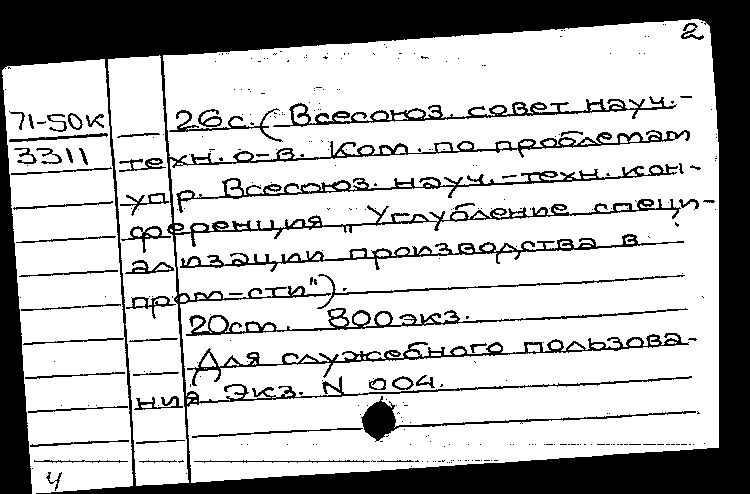 2
71-50К
3311
26с. (Всесоюз. совет науч.-
техн. о-в. Ком. по проблемам
упр. Всесоюз. науч.-техн. кон-
ференция „Углубление специ-
ализации производства в
пром-сти").
20см. 800экз.
Для служебного пользова-
ния. Экз. N 004.
ч